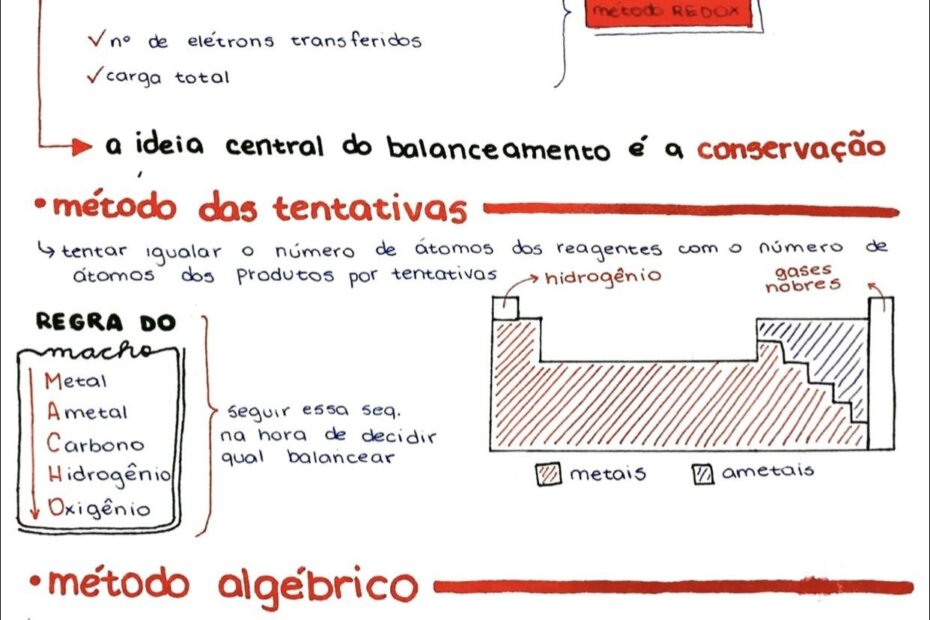 método REDOX
✓nº de elétrons transferidos
✓carga total
a ideia central do balanceamento é a conservação
•método das tentativas
↳tentar igualar o número de átomos dos reagentes com o número de
átomos dos produtos por tentativas
hidrogênio
gases
nobres
REGRA DO
macho
Metal
Ametal
Carbono
Hidrogênio
Oxigênio
seguir essa seq.
na hora de decidir
qual balancear
metais
ametais
•método algébrico